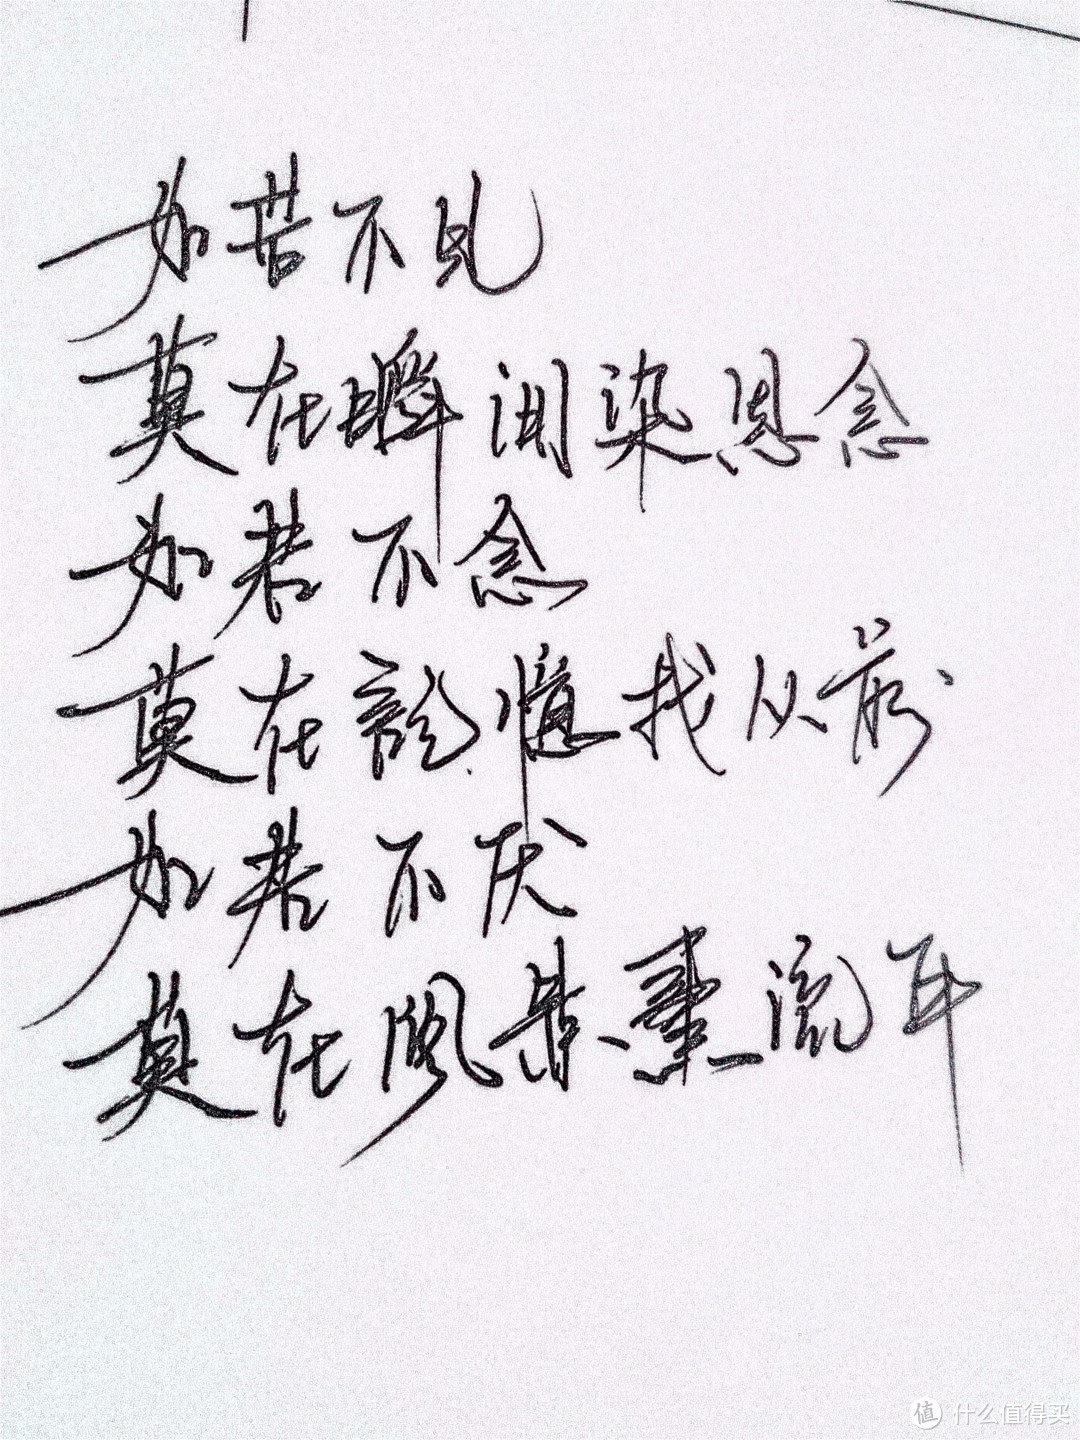 如若不见
莫在瞬间染恩念
如若不念
莫在记忆找从前
如若不厌
莫在风景惹流年
值 什么值得买